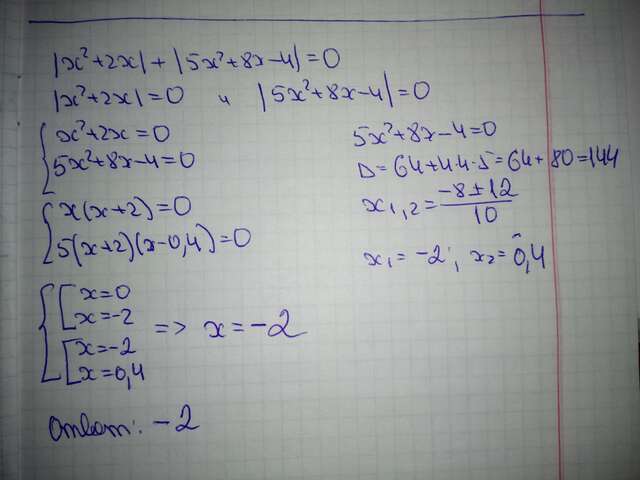 |x²+2x|+|5x²+8x-4|=0
|x²+2x|=0 и |5x²+8x-4|=0
{x²+2x=0
{5x²+8x-4=0
{x(x+2)=0
{5(x+2)(x-0,4)=0
{[x=0
[x=-2
[x=-2
[x=0,4
=> x=-2
Ответ: -2
5x²+8x-4=0
D=64+4·4·5=64+80=144
x₁,₂=(-8±12)/10
x₁=-2; x₂=0,4